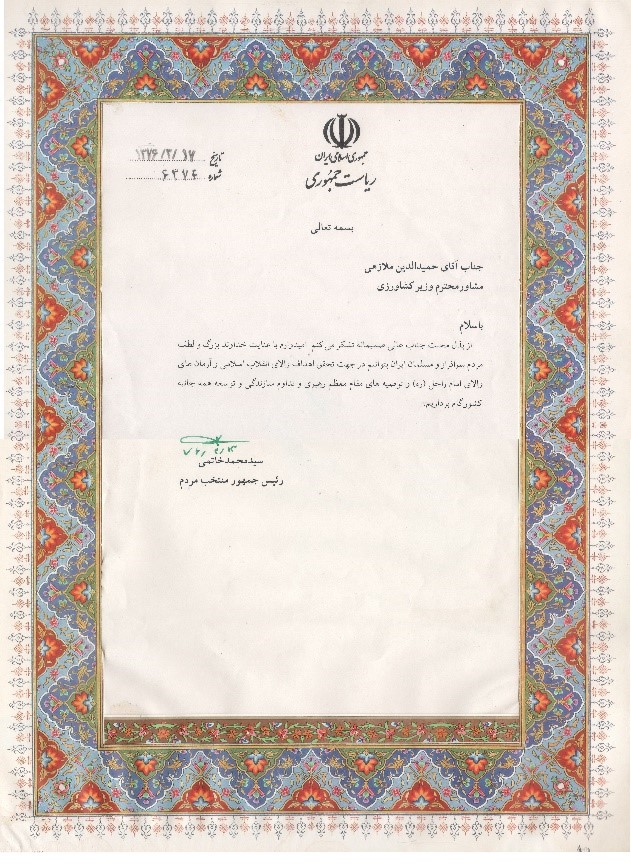 جمهوری اسلامی ایران
ریاست جمهوری
تاریخ ۱۳۷۶/۳/۱۷
شماره ۶۳۷۶
بسمه تعالی
جناب آقای حمیدالدین ملازهی
مشاور محترم وزیر کشاورزی
باسلام
از بذل محبت جناب عالی صمیمانه تشکر می کنم امیدوارم با عنایت خداوند بزرگ و لطف
مردم سرافراز و مسلمان ایران بتوانیم در جهت تحقق اهداف والای انقلاب اسلامی و آرمان های
والای امام راحل (ره) و توصیه های مقام معظم رهبری و تداوم سازندگی و توسعه همه جانبه
کشور گام برداریم.
سیدمحمدخاتمی
رئیس جمهور منتخب مردم